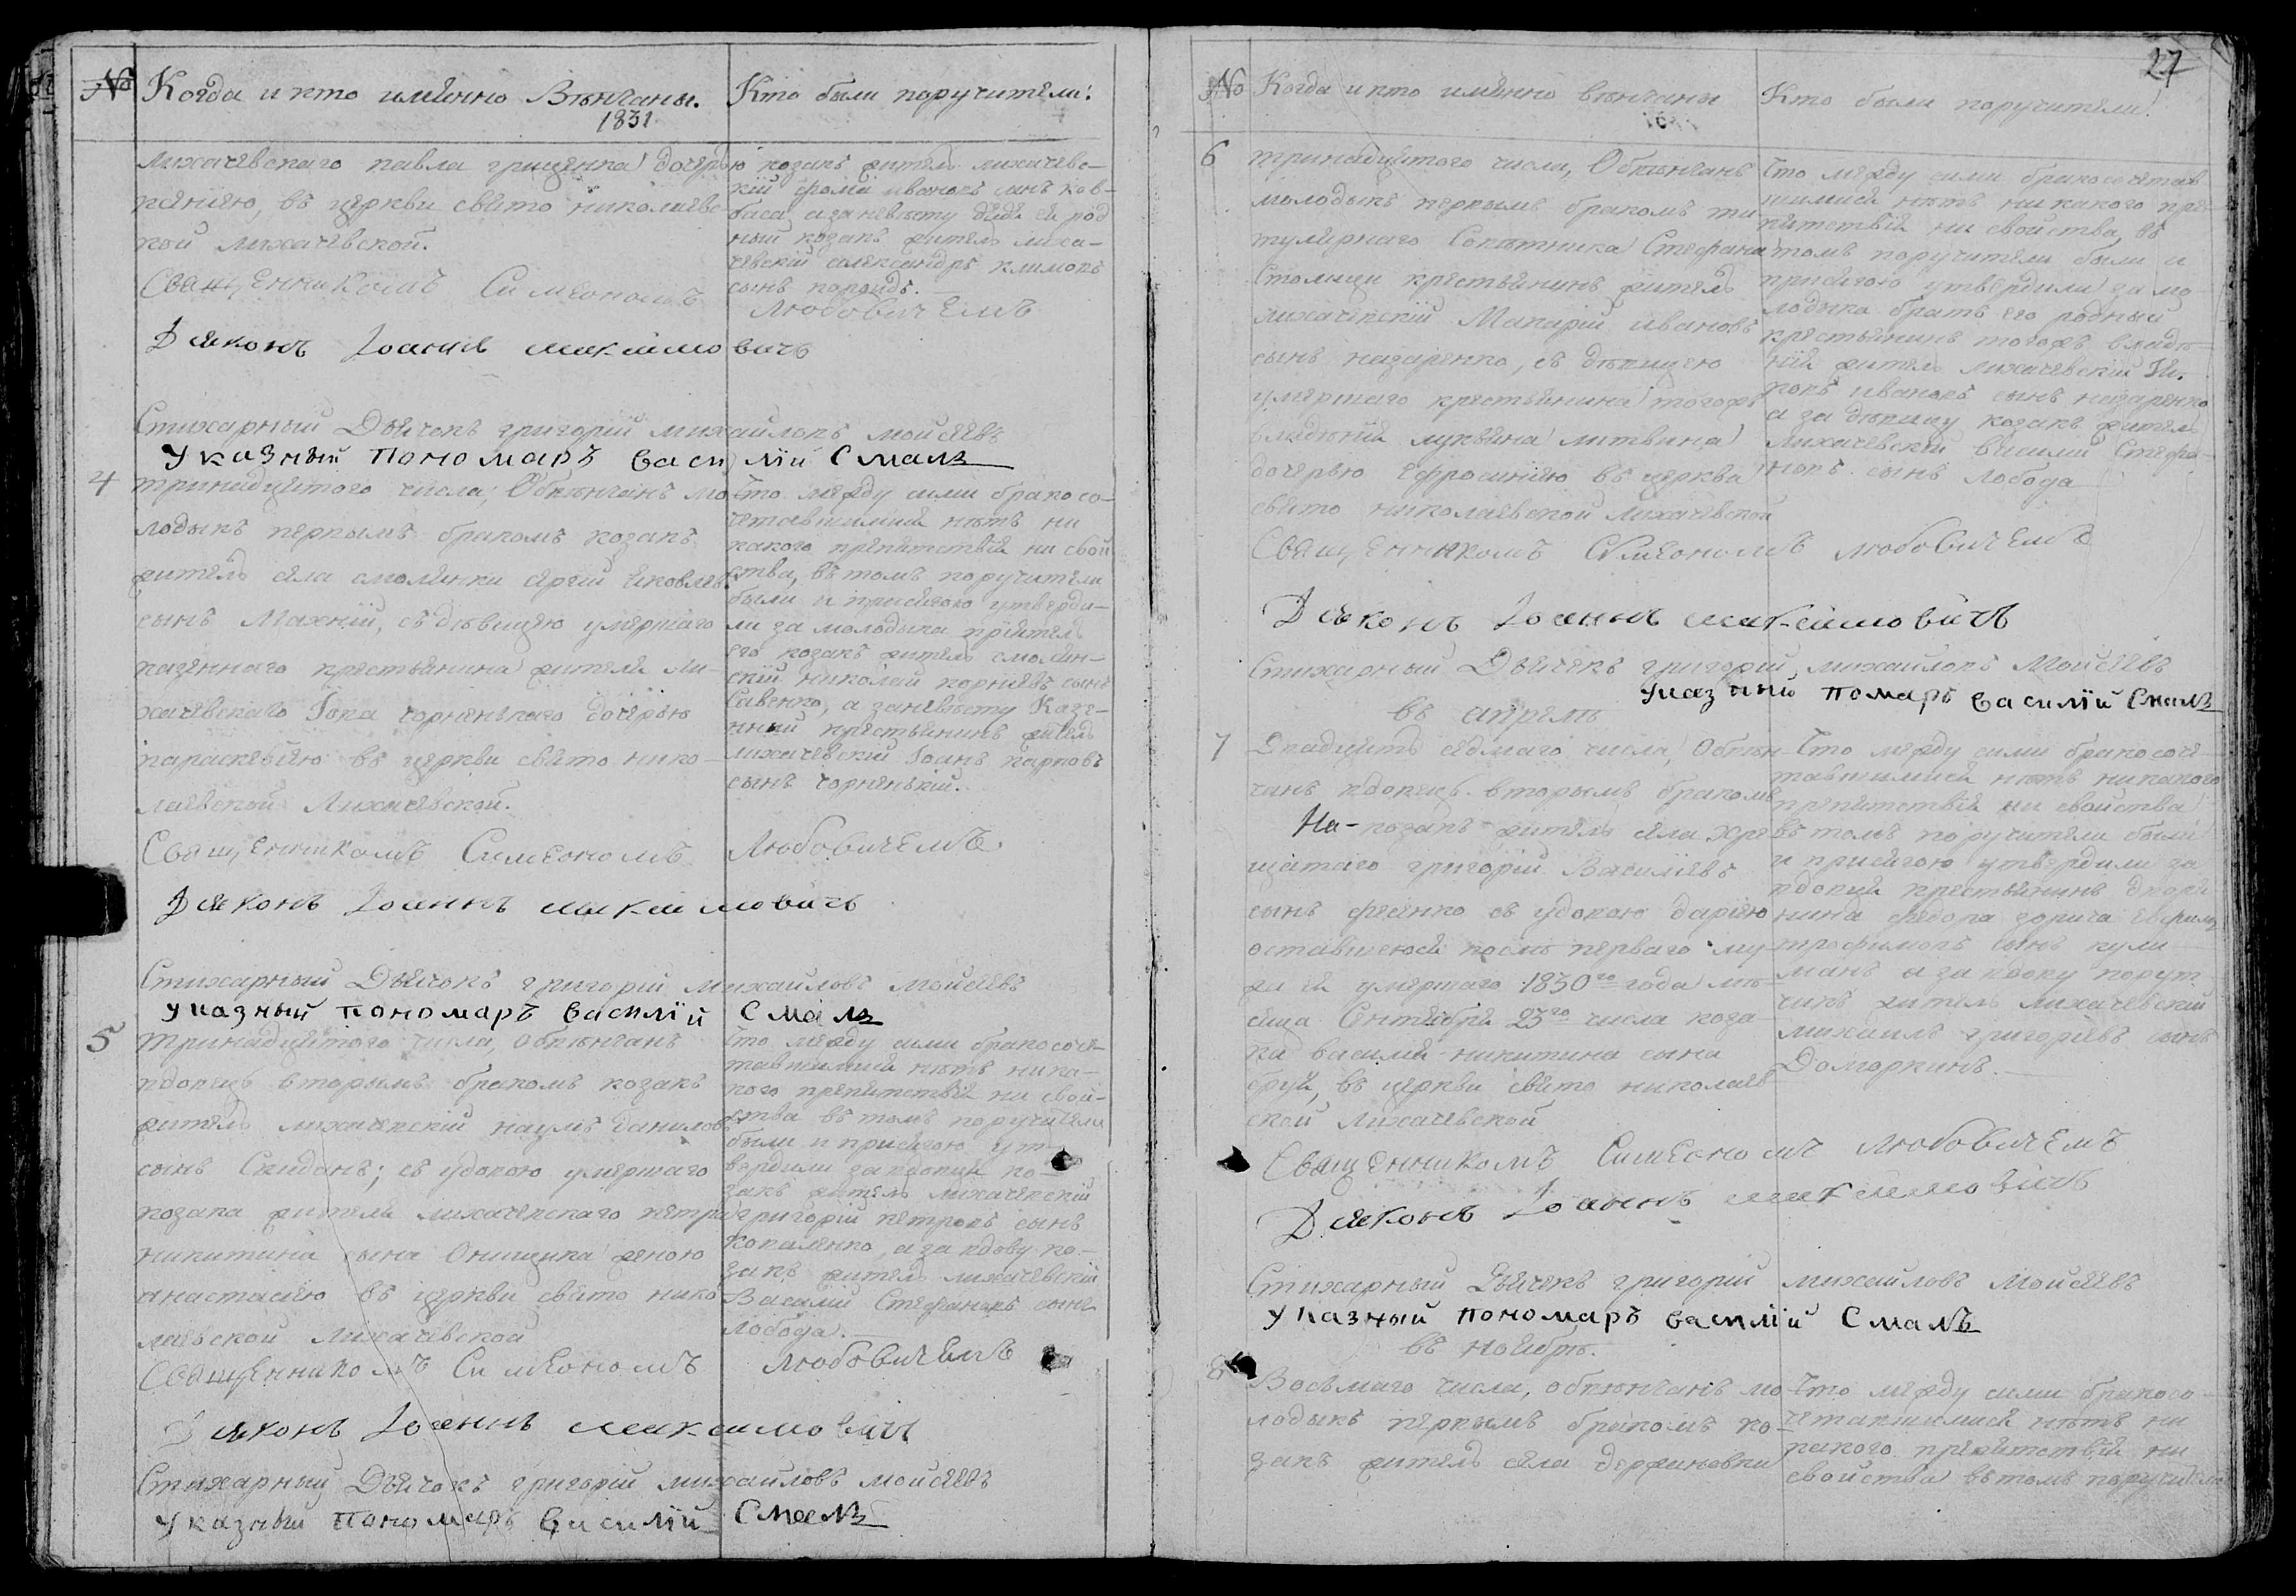 № Когда и кто именно Вѣнчаны.
1831
Кто были поручители:
лихачевскаго павла грищенка дочерью
ксениею, въ церкви свято николаевс-
кой лихачевской.
козакъ житель лихачевс-
кій фома ивановъ сынъ ков-
баса, а за невѣсту дядя ей род
ный козакъ житель лиха-
чевскій александръ климовъ
сынъ
Священникомъ Симеономъ Любовичемъ
Діяконъ Іоаннъ максимовичъ
Стихарный Дьячокъ григорій михайловъ мойсеевъ
Указный пономаръ василій Смалъ
4 тринадцятого числа, Обвѣнчанъ мо-
лодыкъ первымъ бракомъ козакъ
житель села смолянки сергій яковлевъ
сынъ Махній, съ дѣвицею умершаго
казенного крестьянина жителя ли-
хачевскаго Іова чорненкаго дочерью
параскевіею въ церкви свято нико-
лаевской Лихачевской.
Что между сими бракосо-
четавшимися нѣтъ ни
какого препятствія ни свой
ства, въ томъ поручители
были и присягою утверди-
ли за молодыка пріятель
его козакъ житель смолян-
скій николай корніевъ сынъ
Савенко, а за невѣсту Казе-
нный крестьянинъ житель
лихачевскій Іоанъ карповъ
сынъ чорненькій.
Священникомъ Симеономъ Любовичемъ.
Діяконъ Іоаннъ максимовичъ
Стихарный Дьячокъ григорій михайловъ мойсеевъ
указный пономаръ василій Смалъ
5 тринадцятого числа, обвѣнчанъ
вдовецъ вторымъ бракомъ козакъ
житель лихачевскій наумъ даниловъ
сынъ Скиданъ; съ удовою умершаго
козака жителя лихачевскаго петра
никитина сына Онищика женою
анастасіею въ церкви свято нико
лаевской лихачевской
Что между сими бракосоче-
тавшимися нѣтъ ника-
кого препятствія ни свой-
ства въ томъ поручители
были и присягою ут-
вердили за вдовця ко-
закъ житель лихачевскій
григорій петровъ сынъ
коваленко, а за вдову ко-
закъ житель лихачевскій
Василій Стефановъ сынъ
лобода.
Священникомъ Симеономъ любовичемъ
Діяконъ Іоаннъ максимовичъ
Стихарный Дьячокъ григорій михайловъ мойсеевъ
указный пономаръ василій Смалъ
27
№ Когда и кто именно вѣнчаны
Кто были поручители.
6 тринадцятого числа, Обвѣнчанъ
молодыкъ первымъ бракомъ ти
тулярнаго Совѣтника Стефана
Столици крестьянинъ житель
лихачевскій Макарій ивановъ
сынъ назаренко, съ дѣвицею
умершаго крестьянина тогожъ
владѣнія лукьяна литвина
дочерью ефросиніею въ церква
свято николаевской лихачевской
Что между сими бракосочетав
шимися нѣтъ никакого пре-
пятствія ни свойства, въ
томъ поручители были и
присягою утвердили за мо-
лодыка братъ его родный
крестьянинъ тогожъ владѣ-
нія житель лихачевскій
ивановъ сынъ назаренко
а за дѣвицу козакъ житель
лихачевскій василій Стефа-
новъ сынъ лобода
Священникомъ Симеономъ любовичемъ
Діяконъ Іоаннъ максимовичъ
Стихарный Дьячекъ григорій михайловъ Мойсеевъ
указный помаръ василій Смалъ
въ апрелѣ
7 Двадцять седмаго числа, Обвѣн-
чанъ вдовецъ вторымъ бракомъ
На- козакъ житель села хре
щатаго григорій Василіевъ
сынъ феенко съ удовою даріею
оставшеюся послѣ перваго му-
жа ей умершаго 1830го года мѣ-
сяца Сентября 23го числа коза
ка василія никитина сына
бруя, въ церкви свято николаев
ской Лихачевской
Что между сими бракосоче-
тавшимися нѣтъ никакого
препятствія ни свойства
въ томъ поручители были
и присягою утвердили за
вдовця крестьянинъ дворя
нина федора зорича
трофимовъ сынъ кули
а за вдову порут-
чикъ житель лихачевскій
михаилъ григоріевъ сынъ
Долгоркинъ.
Священникомъ Симеономъ любовичемъ
Діяконъ Іоаннъ максимовичъ
Стихарный Дьячекъ григорій михайловъ Мойсеевъ
указный пономаръ василій Смалъ
въ ноябрѣ.
8 Восьмаго числа, обвѣнчанъ мо-
лодыкъ первымъ бракомъ ко-
закъ житель села держановки
Что между сими бракосо-
четавшимися нѣтъ ни
какого препятствія ни
свойства въ томъ поручители